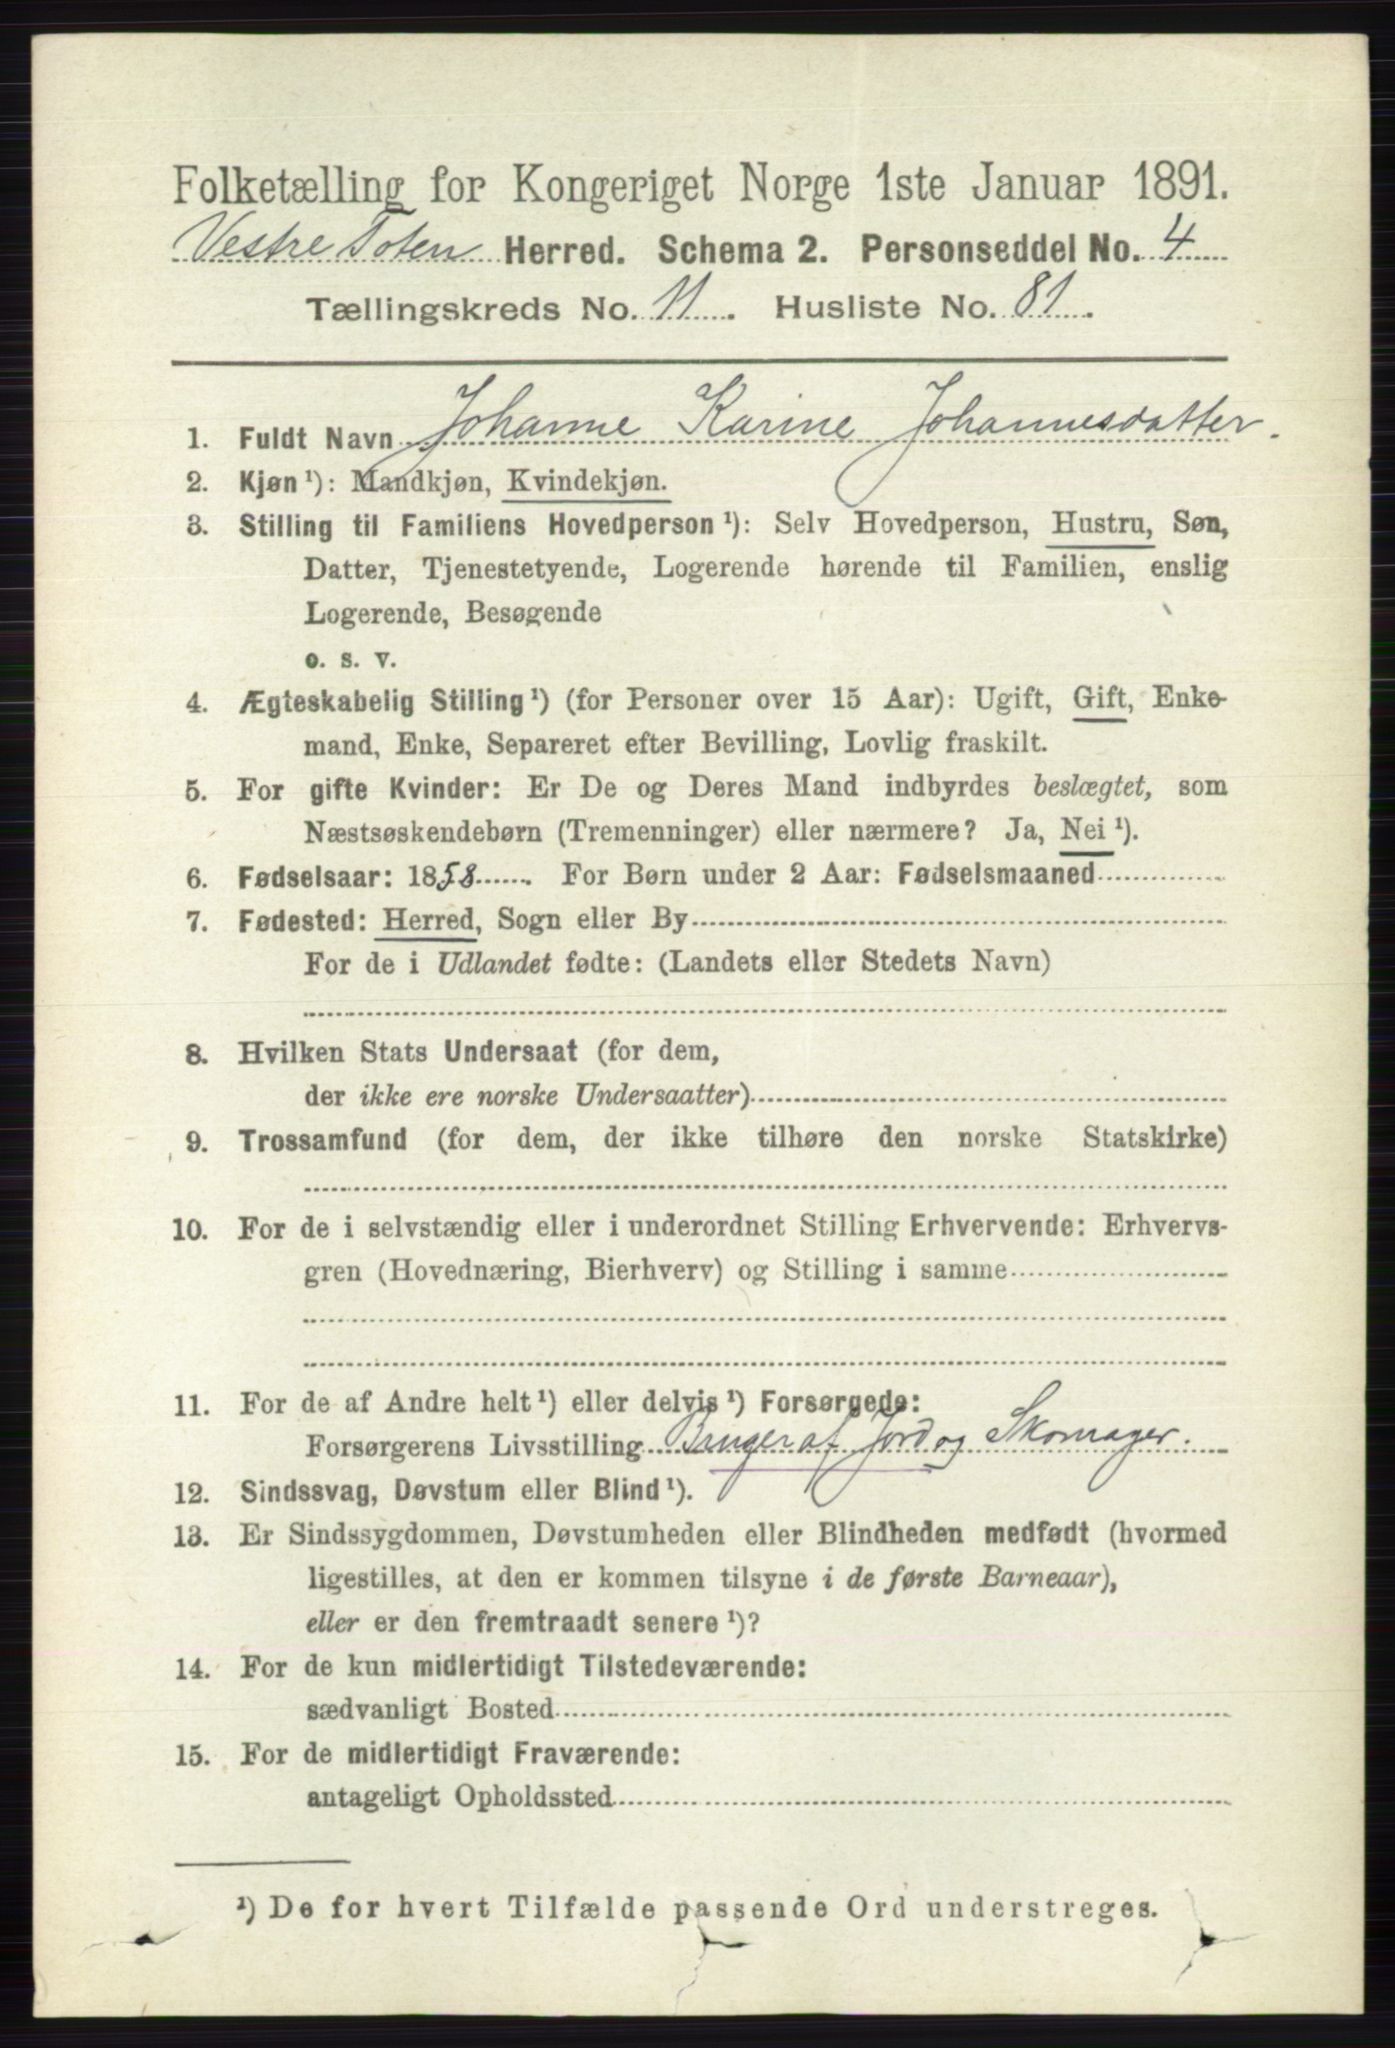 Folketælling for Kongeriget Norge 1ste Januar 1891.
Vestre Toten Herred. Schema 2. Personseddel No. 4
Tællingskreds No. 11. Husliste No. 81.
1. Fuldt Navn Johanne Karine Johannesdatter.
2. Kjøn ¹): Mandkjøn, Kvindekjøn.
3. Stilling til Familiens Hovedperson ¹): Selv Hovedperson, Hustru, Søn,
Datter, Tjenestetyende, Logerende hørende til Familien, enslig
Logerende, Besøgende
o. s. v.
4. Ægteskabelig Stilling ¹) (for Personer over 15 Aar): Ugift, Gift, Enke-
mand, Enke, Separeret efter Bevilling, Lovlig fraskilt.
5. For gifte Kvinder: Er De og Deres Mand indbyrdes beslægtet, som
Næstsøskendebørn (Tremenninger) eller nærmere? Ja, Nei ¹).
6. Fødselsaar: 1858. For Børn under 2 Aar: Fødselsmaaned
7. Fødested: Herred, Sogn eller By
For de i Udlandet fødte: (Landets eller Stedets Navn)
8. Hvilken Stats Undersaat (for dem,
der ikke ere norske Undersaatter)
9. Trossamfund (for dem, der ikke tilhøre den norske Statskirke)
10. For de i selvstændig eller i underordnet Stilling Erhvervende: Erhvervs-
gren (Hovednæring, Bierhverv) og Stilling i samme
11. For de af Andre helt ¹) eller delvis ¹) Forsørgede:
Forsørgerens Livsstilling Bruger af Jord og Skomager.
12. Sindssvag, Døvstum eller Blind ¹).
13. Er Sindssygdommen, Døvstumheden eller Blindheden medfødt (hvormed
ligestilles, at den er kommen tilsyne i de første Barneaar),
eller er den fremtraadt senere ¹)?
14. For de kun midlertidigt Tilstedeværende:
sædvanligt Bosted
15. For de midlertidigt Fraværende:
antageligt Opholdssted
¹) De for hvert Tilfælde passende Ord understreges.